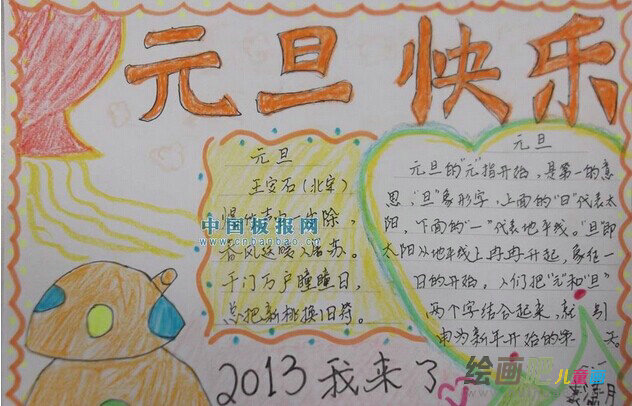 元旦快乐
元旦
王安石(北宋)
爆竹声中一岁除,
中国板报网
www.cnbanbao.cn
春风送暖入屠苏。
千门万户瞳瞳日,
总把新桃换旧符。
元旦
元旦的“元”指开始,是第一的意
思,“旦”象形字,上面的“日”代表太
阳,下面的“一”代表地平线。“旦”即
太阳从地平线上冉冉升起,象征一
日的开始。人们把“元”和“旦”
两个字结合起来,就
申为新年开始的第一天。
2013我来了
绘画吧
儿童画